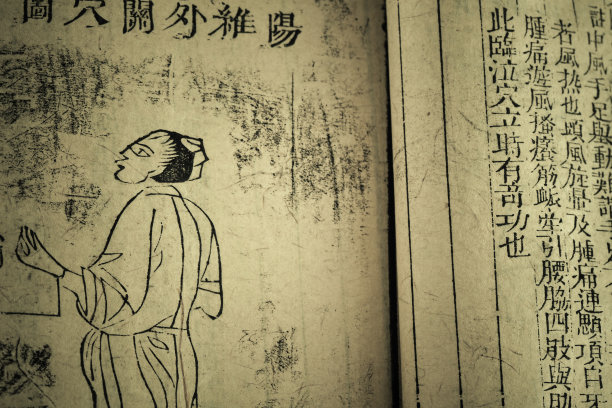 陽維外關穴圖
中風手足與動難
者風热也頭風旋暈及腫痛連顋項
腫痛遊風搔癢筋脈牽引腰脇四肢與
此臨泣穴立時有奇功也